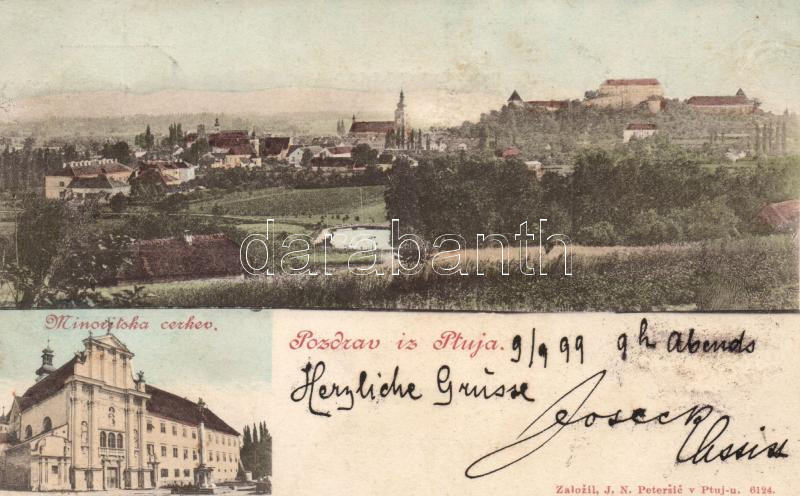 databanth
Minoritska cerkev.
Pozdrav iz Ptuja. 9/9 99 9h Abends
Herzliche Grüsse
Založil, J. N. Peteršič v Ptuj-u. 6124.